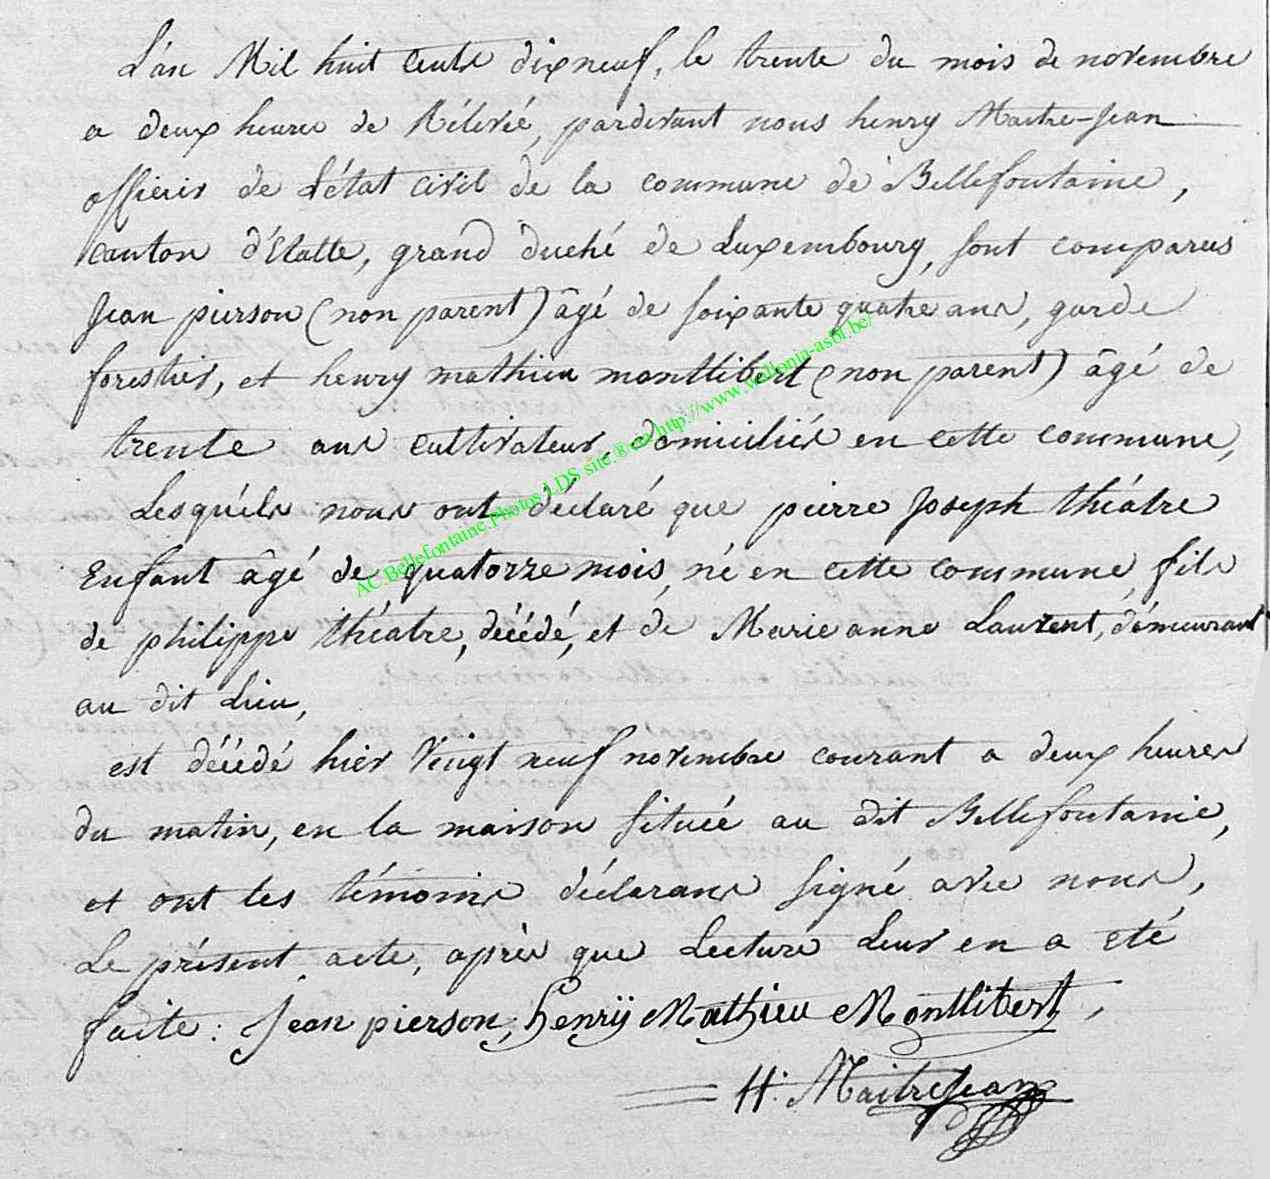 L'an Mil huit cents dixneuf, le trente du mois de novembre
a deux heures de Rélevée, pardevant nous henry Maitre-Jean
officier de L'état civil de la commune de Bellefontaine,
canton d'Etalle, grand duché de Luxembourg, sont comparus
Jean pierson (non parent) âgé de soixante quatre ans, garde
forestier, et henry mathieu montlibert (non parent) âgé de
trente ans cultivateur, domiciliés en cette commune,
Lesquéls nous ont déclaré que pierre Joseph théatre
Enfant âgé de quatorze mois, né en cette commune, fils
de philippe théatre, décédé, et de Marie anne Laurent, démeurant
au dit Lieu,
est décédé hier Vingt neuf novembre courant a deux heures
du matin, en la maison située au dit Bellefontaine,
et ont les témoins déclarans signé avec nous,
Le présent acte, après que Lecture Leur en a eté
faite : Jean pierson, henrÿ Mathieu Montlibert,
H. Maitrejean
AC.Bellefontaine.Photos LDS site.® on http://www.wellonia-asbl.be/